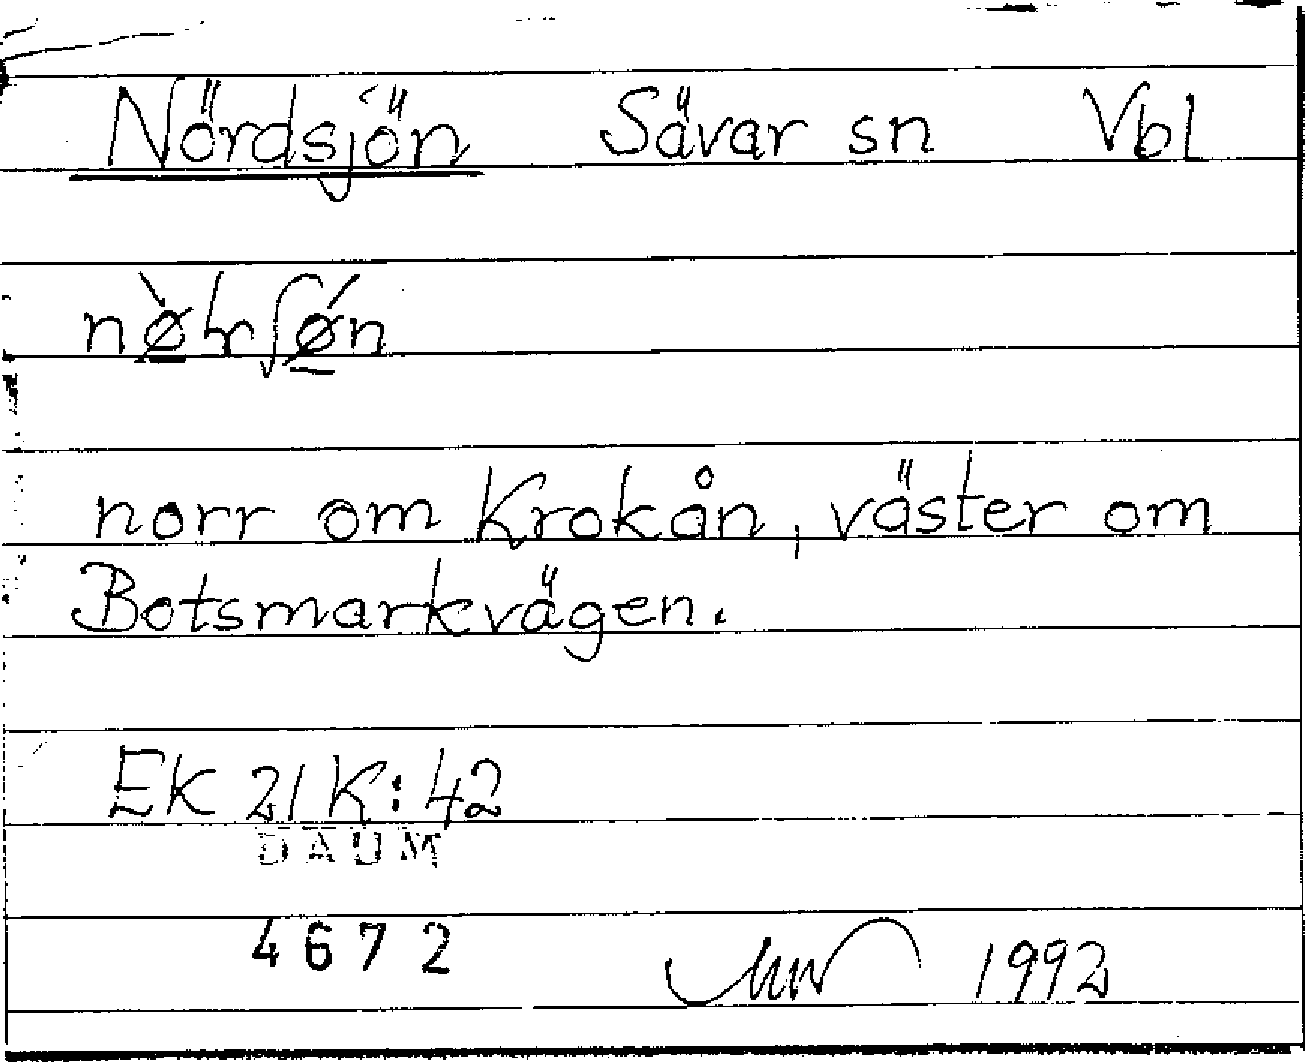 Nördsjön Sävar sn Vbl
norr om Krokån, väster om
Botsmarkvägen.
EK 21 K: 42
DAUM
4672
1992